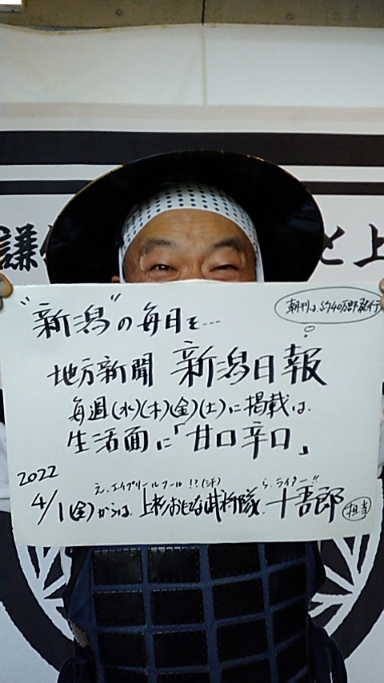 謙 と上
"新潟"の毎日を…
朝刊は、約40万部発行
地方新聞 新潟日報
毎週(水)(木)(金)(土)に掲載は、
生活面に「甘口辛口」
2022
え、エイプリールフール!?(汗)
ら、ライター!!
4/1(金)からは、上杉おもてなし武将隊、十吾郎 担当